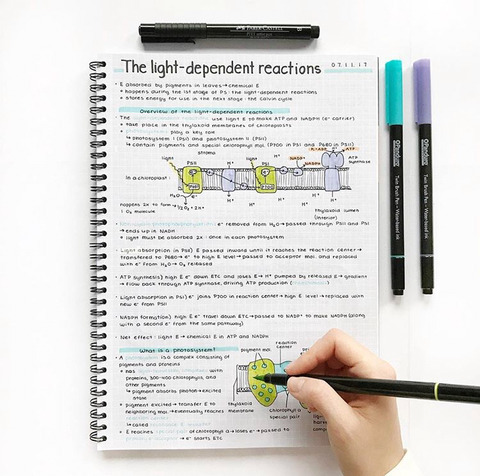 FABER-CASTELL
The light-dependent reactions 07.11.17
• E absorbed by pigments in leaves → chemical E
+ happens during the 1st stage of PS: the light-dependent reactions
+ stores energy for use in the next stage: the calvin cycle
Overview of the light-dependent reactions
• The light-dependent reactions use light E to make ATP and NADPH (e⁻ carrier)
+ take place in the thylakoid membrane of chloroplasts
play a key role
+ photosystem I (PSI) and photosystem II (PSII)
↳ contain pigments and special chlorophyll mol (P700 in PSI and P680 in PSII)
stroma
light PSII H⁺ light PSI NADP⁺ NADPH ATP synthase
In a chloroplast: P680 P700
H₂O H⁺
happens 2x to form 1 O₂ molecule ½O₂ + 2H⁺
thylakoid lumen (interior)
e⁻ removed from H₂O → passed through PSII and PSI
→ ends up in NADPH
+ light must be absorbed 2x: once in each photosystem
• Light absorption in PSII) E passed inward until it reaches the reaction center →
transferred to P680 → e⁻ to high E level → passed to acceptor mol. and replaced
with e⁻ from H₂O → O₂ released
• ATP synthesis) high E e⁻ down ETC and loses E → H⁺ pumped by released E → gradient
→ flow back through ATP synthase, driving ATP production
• Light absorption in PSI) e⁻ joins P700 in reaction center → high E level → replaced with
new e⁻ from PSII
• NADPH formation) high E e⁻ travel down ETC → passed to NADP⁺ to make NADPH (along
with a second e⁻ from the same pathway)
• Net effect: light E → chemical E in ATP and NADPH
What is a photosystem?
• A photosystem is a complex consisting of
pigments and proteins
+ has
proteins, 300-400 chlorophylls, and
other pigments
↳ pigment absorbs photon → excited
state
+ pigment excited → transfer E to
neighboring mol. → eventually reaches
↳ called
+ E reaches special pair of chlorophyll a → loses e⁻ → passed to
→ e⁻ starts ETC
pigment mol.
reaction center
thylakoid membrane
chlorophyll a special pair
Twin Brush Pen • Water-based ink
Twin Brush Pen • Water-based ink